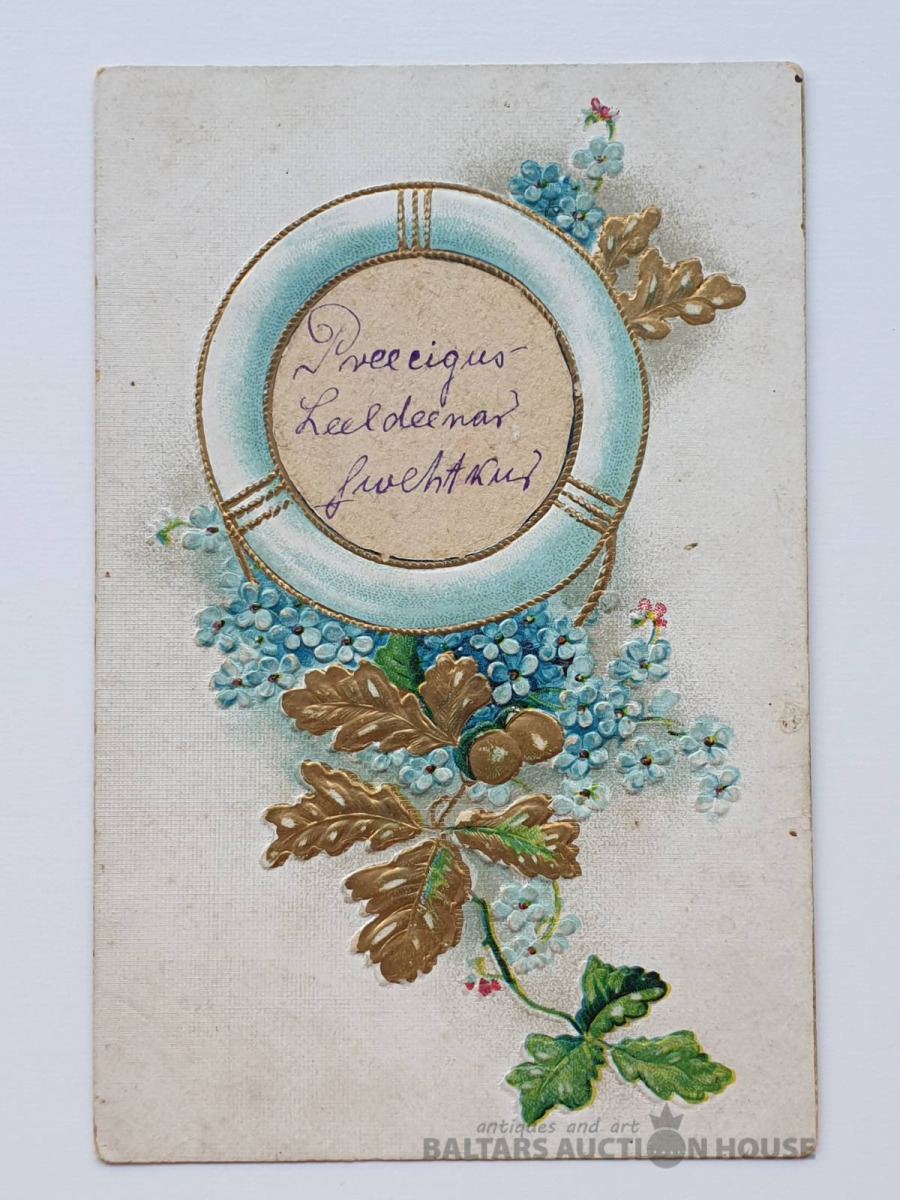 Preecigus-
Leeldeenas
swehtkus
antiques and art
BALTARS AUCTION HOUSE